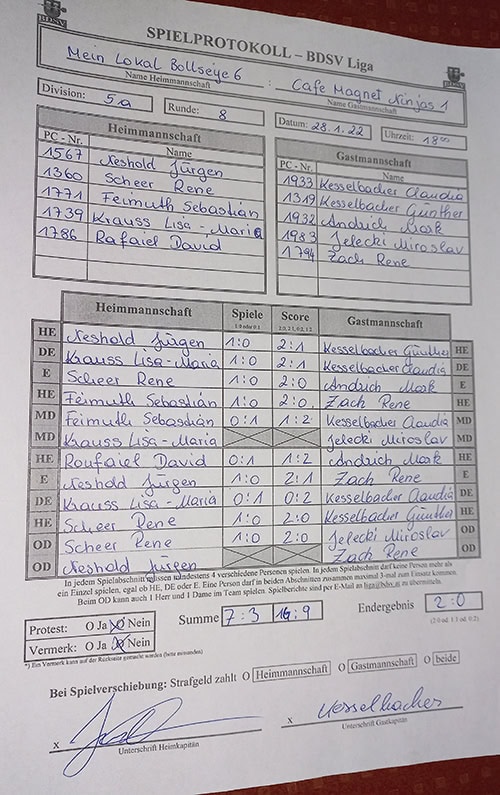 SPIELPROTOKOLL – BDSV Liga
BDSV
Mein Lokal Bollseye 6 : Cafe Magnet Ninjas 1
Name Heimmannschaft Name Gastmannschaft
Division: 5a Runde: 8 Datum: 28.1.22 Uhrzeit: 18⁰⁰
Heimmannschaft Gastmannschaft
PC - Nr. Name PC - Nr. Name
1567 Neshold Jürgen 1933 Kesselbacher Claudia
1360 Scheer Rene 1319 Kesselbacher Günther
1771 Feimuth Sebastián 1932 Andrich Maik
1739 Krauss Lisa-Maria 1983 Jelecki Miroslav
1786 Rafaiel David 1794 Zach Rene
Heimmannschaft Spiele Score Gastmannschaft
1:0 oder 0:1 2:0, 2:1, 0:2, 1:2
HE Neshold Jürgen 1:0 2:1 Kesselbacher Günther HE
DE Krauss Lisa-Maria 1:0 2:1 Kesselbacher Claudia DE
E Scheer Rene 1:0 2:0 Andrich Maik E
HE Feimuth Sebastián 1:0 2:0 Zach Rene HE
MD Feimuth Sebastián 0:1 1:2 Kesselbacher Claudia MD
MD Krauss Lisa-Maria Jelecki Miroslav MD
HE Roufaiel David 0:1 1:2 Andrich Maik HE
E Neshold Jürgen 1:0 2:1 Zach Rene E
DE Krauss Lisa-Maria 0:1 0:2 Kesselbacher Claudia DE
HE Scheer Rene 1:0 2:0 Kesselbacher Günther HE
OD Scheer Rene 1:0 2:0 Jelecki Miroslav OD
OD Neshold Jürgen Zach Rene OD
In jedem Spielabschnitt müssen mindestens 4 verschiedene Personen spielen. In jedem Spielabschnitt darf keine Person mehr als
ein Einzel spielen, egal ob HE, DE oder E. Eine Person darf in beiden Abschnitten zusammen maximal 3-mal zum Einsatz kommen.
Beim OD kann auch 1 Herr und 1 Dame im Team spielen. Spielberichte sind per E-Mail an liga@bdsv.at zu übermitteln.
Protest: O Ja O Nein Summe 7:3 16:9 Endergebnis 2:0
Vermerk: O Ja O Nein (2:0 od. 1:1 od. 0:2)
*) Ein Vermerk kann auf der Rückseite gemacht werden (bitte umwenden)
Bei Spielverschiebung: Strafgeld zahlt O Heimmannschaft O Gastmannschaft O beide
x x Kesselbacher
Unterschrift Heimkapitän Unterschrift Gastkapitän